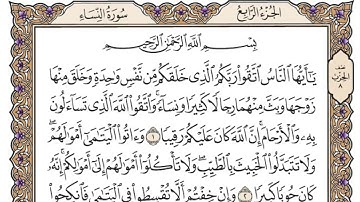 الجزء الرابع
سورة النساء
بِسْمِ اللَّهِ الرَّحْمَٰنِ الرَّحِيمِ
يَٰٓأَيُّهَا النَّاسُ اتَّقُوا رَبَّكُمُ الَّذِي خَلَقَكُم مِّن نَّفْسٍ وَٰحِدَةٍ وَخَلَقَ مِنْهَا
زَوْجَهَا وَبَثَّ مِنْهُمَا رِجَالًا كَثِيرًا وَنِسَآءً ۚ وَاتَّقُوا اللَّهَ الَّذِي تَسَآءَلُونَ
بِهِۦ وَالْأَرْحَامَ ۚ إِنَّ اللَّهَ كَانَ عَلَيْكُمْ رَقِيبًا ١ وَءَاتُوا الْيَتَٰمَىٰٓ أَمْوَٰلَهُمْ ۖ
وَلَا تَتَبَدَّلُوا الْخَبِيثَ بِالطَّيِّبِ ۖ وَلَا تَأْكُلُوٓا أَمْوَٰلَهُمْ إِلَىٰٓ أَمْوَٰلِكُمْ ۚ إِنَّهُۥ
كَانَ حُوبًا كَبِيرًا ٢ وَإِنْ خِفْتُمْ أَلَّا تُقْسِطُوا فِي الْيَتَٰمَىٰ فَانكِحُوا